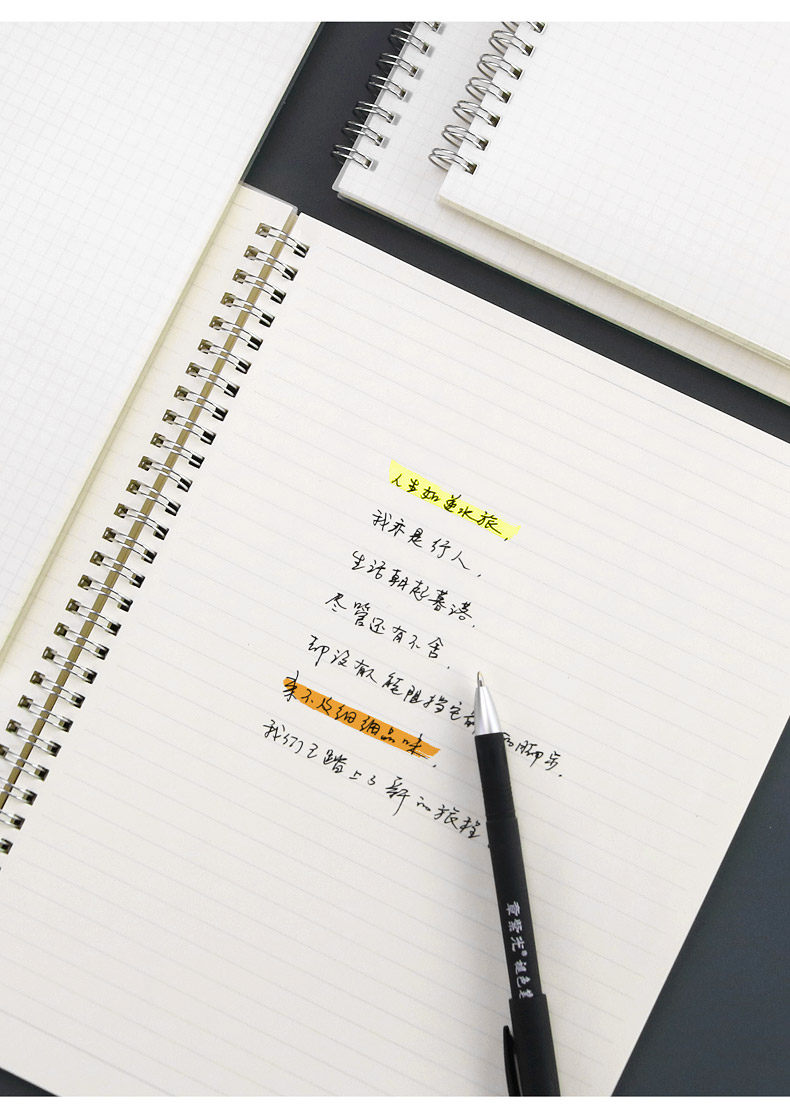 人生如逆水旅，
我亦是行人，
生活朝起暮落，
尽管还有不舍，
却没有人能阻挡它前 的脚步，
来不及细细品味，
我们已踏上了新的旅程
章紫光® 褪色墨